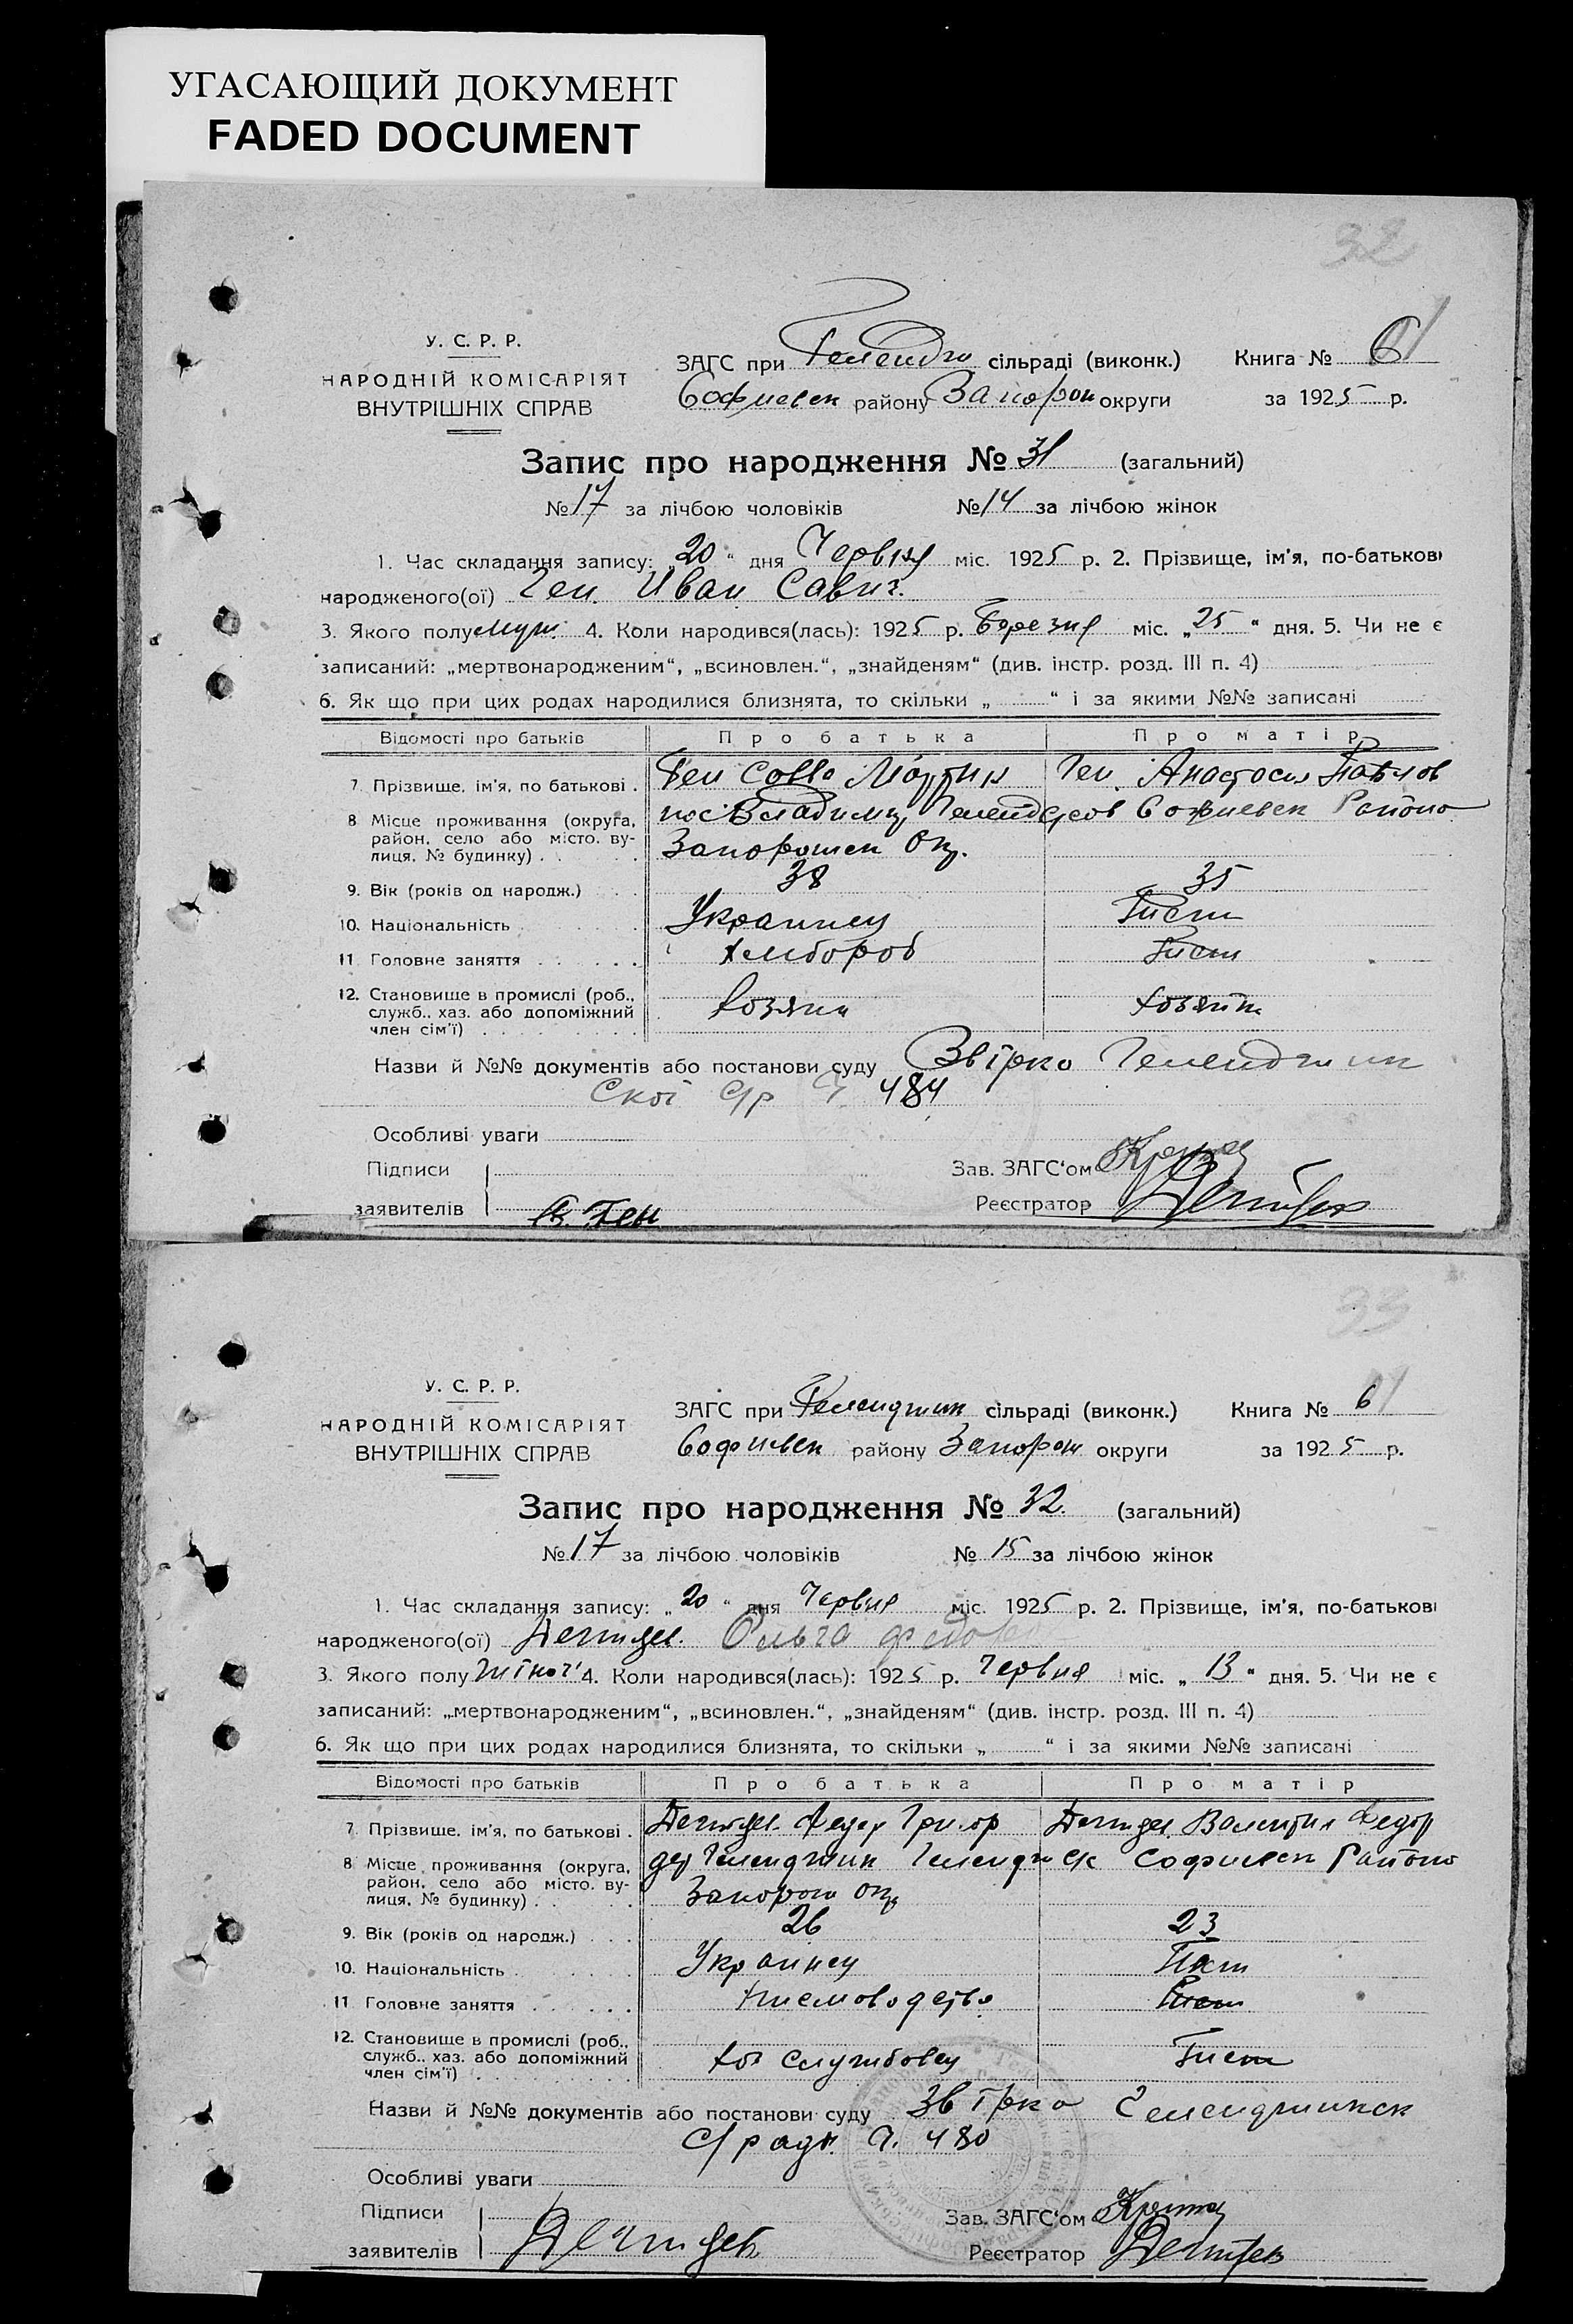 УГАСАЮЩИЙ ДОКУМЕНТ
FADED DOCUMENT
32
У. С. Р. Р.
НАРОДНІЙ КОМІСАРІЯТ
ВНУТРІШНІХ СПРАВ
ЗАГС при сільраді (виконк.) Книга № 6
Софиевск району Запорож округи за 1925 р.
Запис про народження № 31 (загальний)
№ 17 за лічбою чоловіків № 14 за лічбою жінок
1. Час складання запису: „20“ дня Червня міс. 1925 р. 2. Прізвище, ім'я, по-батькові
народженого(ої) Ген. Иван Савич.
3. Якого полу муж. 4. Коли народився(лась): 1925 р. Березня міс. „25“ дня. 5. Чи не є
записаний: „мертвонародженим“, „всиновлен.“, „знайденям“ (див. інстр. розд. III п. 4)
6. Як що при цих родах народилися близнята, то скільки „ “ і за якими №№ записані
Відомості про батьків Про батька Про матір
7. Прізвище, ім'я, по батькові . Ген Савва Мартин Ген. Анастасия Павлов
8 Місце проживання (округа, район, село або місто, вулиця, № будинку) . . пос Владимир Софиевск Району
Запорожск Окр.
9. Вік (років од народж.) 38 35
10. Національність Украинец
11 Головне заняття . . . . . . хлибороб
12. Становище в промислі (роб., служб., хаз. або допоміжний член сім'ї) хозяин
Назви й №№ документів або постанови суду Звірка Геленджик
ской с/р Ч 484
Особливі уваги
Підписи
заявителів Ген
Зав. ЗАГС'ом
Реєстратор
33
У. С. Р. Р.
НАРОДНІЙ КОМІСАРІЯТ
ВНУТРІШНІХ СПРАВ
ЗАГС при Геленджик сільраді (виконк.) Книга № 6
Софиевск району Запорож округи за 1925 р.
Запис про народження № 32. (загальний)
№ 17 за лічбою чоловіків № 15 за лічбою жінок
1. Час складання запису: „20“ дня Червня міс. 1925 р. 2. Прізвище, ім'я, по-батькові
народженого(ої) Ольга Федоров
3. Якого полу жіноч 4. Коли народився(лась): 1925 р. Червня міс. „13“ дня. 5. Чи не є
записаний: „мертвонародженим“, „всиновлен.“, „знайденям“ (див. інстр. розд. III п. 4)
6. Як що при цих родах народилися близнята, то скільки „ “ і за якими №№ записані
Відомості про батьків Про батька Про матір
7. Прізвище, ім'я, по батькові . Федор Григор Валентина Федор
8 Місце проживання (округа, район, село або місто, вулиця, № будинку) . . дер Геленджик Геленджск Софиевск Району
Запорож окр
9. Вік (років од народж.) . . . 26 23
10. Національність Украинец
11 Головне заняття . . . . . .
12. Становище в промислі (роб., служб., хаз. або допоміжний член сім'ї) службовец
Назви й №№ документів або постанови суду Звірка Геленджикск
с/рады Ч. 480
Особливі уваги
Підписи
заявителів
Зав. ЗАГС'ом
Реєстратор